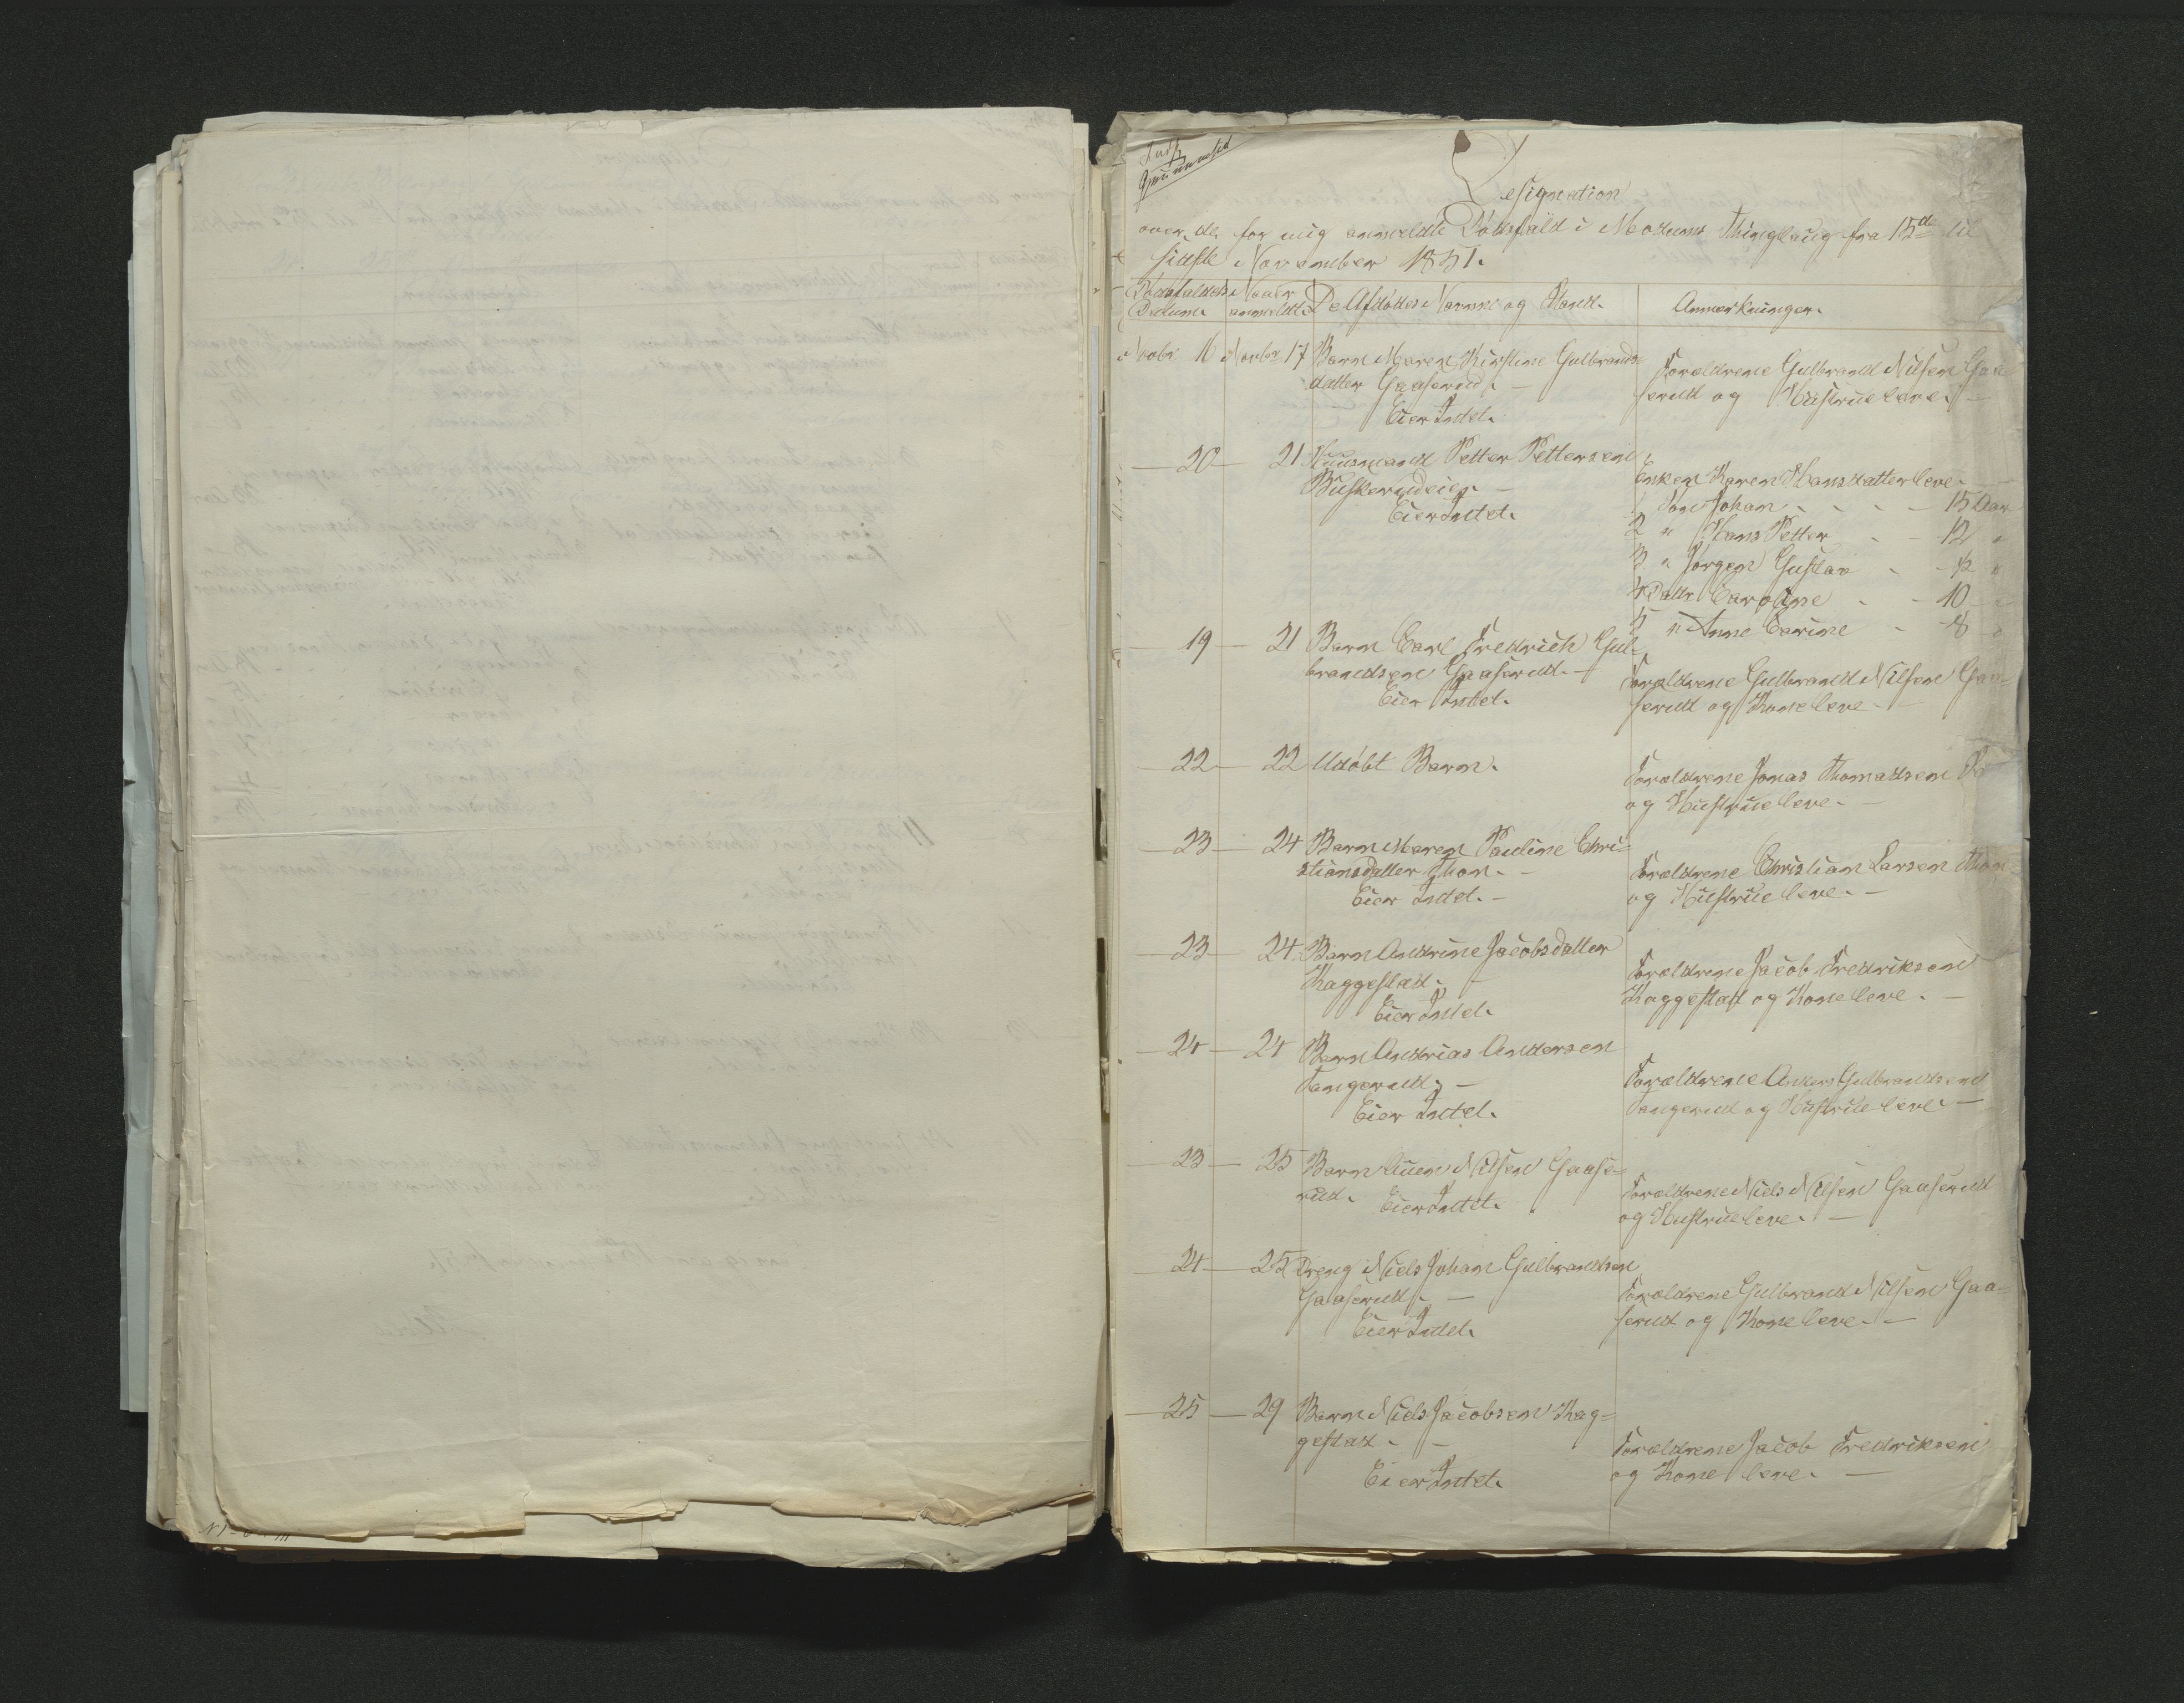 Designation
over de for mig anmeldte Dødsfald i Modums Thinglaug fra 15de til
sidste November 1851.
Dødsfaldets Naar De Afdødes Navne og Stand. Anmærkninger.
Datum. anmeldt.
Novbr 16 Novbr 17 Barn Maren Kirstine Gulbrands
datter Gaaserud. —
Eier Intet.
Forældrene Gulbrand Nilsen Gaa
serud og Hustrue leve. —
— 20 — 21 Huusmand Petter Pettersen
Buskerudeie. —
Eier Intet.
Enken Karen Hansdatter leve. —
1 Søn Johan - - - - 15 Aar
2 " Hans Petter - - 12 "
3 " Jørgen Gustav - - 12 "
4 Datr Caroline - - 10 "
5 " Anne Carine - - 8 "
— 19 — 21 Barn Carl Fredrich Gul-
brandsen Gaaserud. —
Eier Intet.
Forældrene Gulbrand Nilsen Gaa-
serud og Kone leve —
— 22 — 22 Udøbt Barn.
Forældrene Jonas Thomassen
og Hustrue leve. —
— 23 — 24 Barn Maren Pauline Chri-
stiansdatter Thon. —
Eier Intet. —
Forældrene Christian Larsen Thon
og Hustrue leve. —
— 23 — 24 Barn Andrine Jacobsdatter
Kaggestad. —
Eier Intet.
Forældrene Jacob Fredriksen
Kaggestad og Kone leve. —
— 24 — 24 Barn Andrias Andersen
Tangerud. —
Eier Intet.
Forældrene Anders Gulbrandsen
Tangerud og Hustrue leve —
— 23 — 25 Barn Nilsen Gaase-
rud. Eier Intet.
Forældrene Niels Nilsen Gaaserud
og Hustrue leve. —
— 24 — 25 Dreng Niels Johan Gulbrandsen
Gaaserud. —
Eier Intet.
Forældrene Gulbrand Nilsen Gaa-
serud og Kone leve. —
— 25 — 29 Barn Niels Jacobsen Kag-
gestad. —
Eier Intet.
Forældrene Jacob Fredriksen
og Kone leve. —